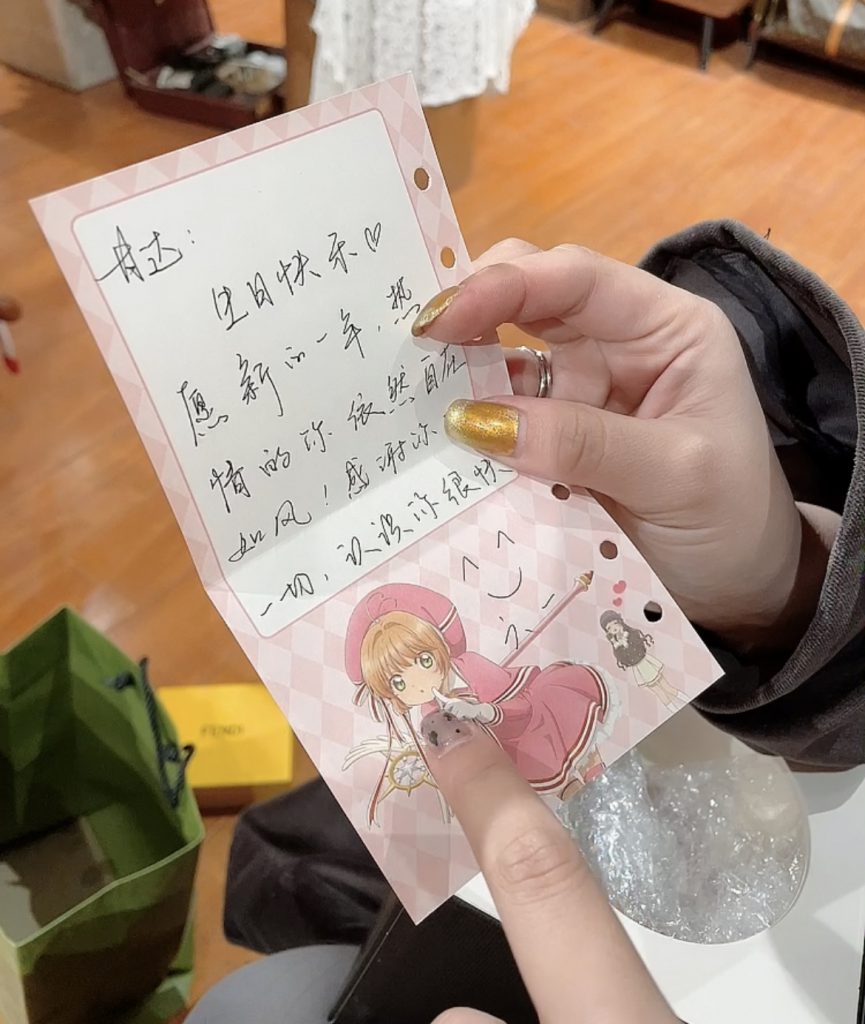 肯达：
生日快乐♡
愿新的一年，热
情的你依然自在
如风！感谢你
一切，认识你很快
FENDI